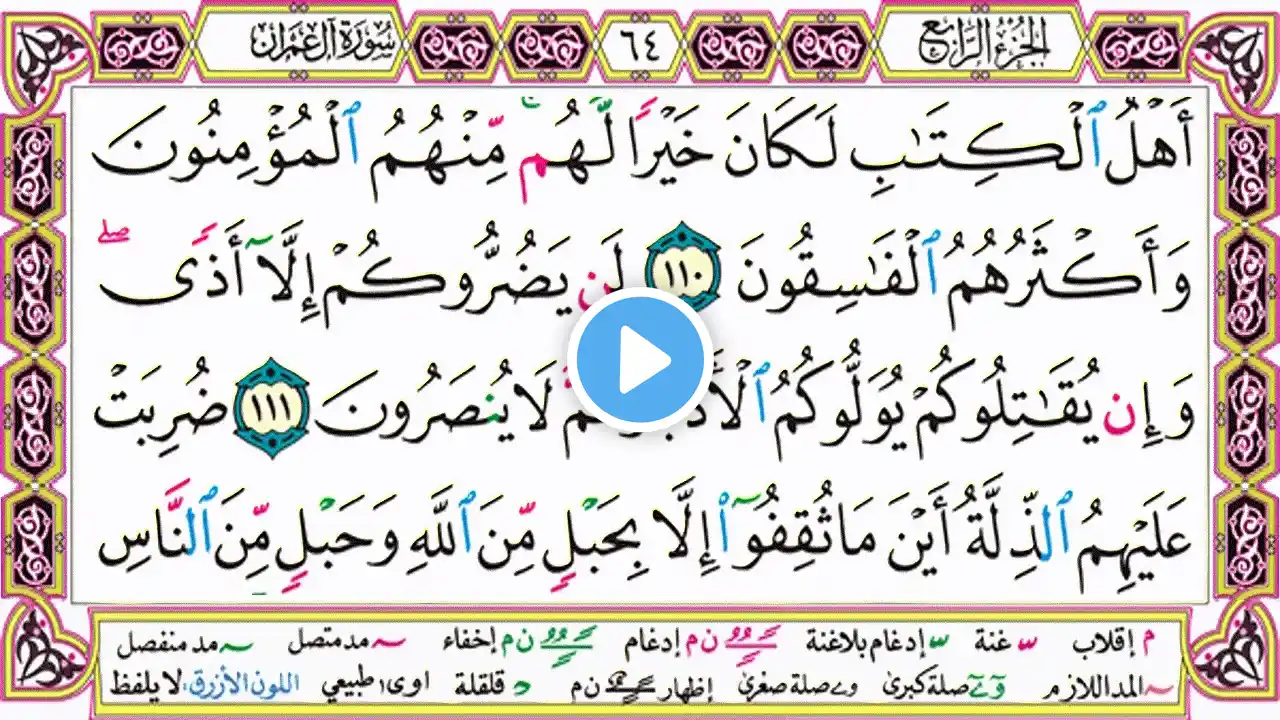 الجزء الرابع ٦٤ سورة آل عمران
أَهْلُ ٱلْكِتَٰبِ لَكَانَ خَيْرًا لَّهُم مِّنْهُمُ ٱلْمُؤْمِنُونَ
وَأَكْثَرُهُمُ ٱلْفَٰسِقُونَ ١١٠ لَن يَضُرُّوكُمْ إِلَّآ أَذًى ۖ
وَإِن يُقَٰتِلُوكُمْ يُوَلُّوكُمُ لَا يُنصَرُونَ ١١١ ضُرِبَتْ
عَلَيْهِمُ ٱلذِّلَّةُ أَيْنَ مَا ثُقِفُوٓا۟ إِلَّا بِحَبْلٍ مِّنَ ٱللَّهِ وَحَبْلٍ مِّنَ ٱلنَّاسِ
م إقلاب غنة إدغام بلاغنة ن م إدغام ن م إخفاء مد متصل مد منفصل
المد اللازم صلة كبرى صلة صغرى إظهار ن م قلقلة اوى طبيعي اللون الأزرق: لا يلفظ